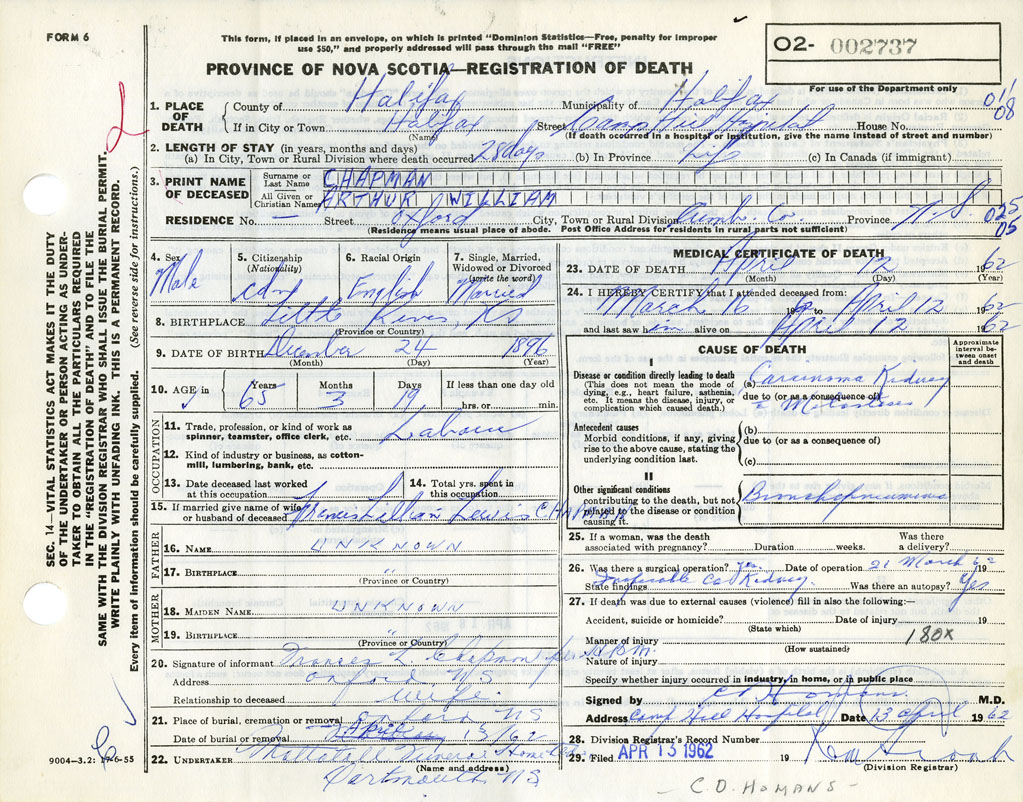 FORM 6
This form, if placed in an envelope, on which is printed "Dominion Statistics—Free, penalty for improper
use $50," and properly addressed will pass through the mail "FREE"
02- 002737
PROVINCE OF NOVA SCOTIA—REGISTRATION OF DEATH
For use of the Department only
1. PLACE OF DEATH { County of Halifax Municipality of Halifax 01
If in City or Town Halifax Street Camp Hill Hospital House No. 08
(Name) (If death occurred in a hospital or institution, give the name instead of street and number)
2. LENGTH OF STAY (in years, months and days)
(a) In City, Town or Rural Division where death occurred 28 days (b) In Province Life (c) In Canada (if immigrant)
3. PRINT NAME OF DECEASED
Surname or Last Name CHAPMAN
All Given or Christian Names ARTHUR WILLIAM
RESIDENCE No. — Street Oxford City, Town or Rural Division Cumb. Co. Province N.S. 025
05
(Residence means usual place of abode. Post Office Address for residents in rural parts not sufficient)
4. Sex Male
5. Citizenship (Nationality) Cdn
6. Racial Origin English
7. Single, Married, Widowed or Divorced (write the word) Married
8. BIRTHPLACE Little River, NS
(Province or Country)
9. DATE OF BIRTH December 24 1896
(Month) (Day) (Year)
10. AGE in Years Months Days If less than one day old
65 3 19 hrs. or min.
OCCUPATION
11. Trade, profession, or kind of work as spinner, teamster, office clerk, etc. Labour
12. Kind of industry or business, as cotton-mill, lumbering, bank, etc.
13. Date deceased last worked at this occupation
14. Total yrs. spent in this occupation
15. If married give name of wife or husband of deceased Frances Lillian Lewis CHAPMAN
FATHER
16. NAME UNKNOWN
17. BIRTHPLACE "
(Province or Country)
MOTHER
18. MAIDEN NAME UNKNOWN
19. BIRTHPLACE "
(Province or Country)
20. Signature of informant Frances L Chapman
Address Oxford NS
Relationship to deceased wife
21. Place of burial, cremation or removal Oxford NS
Date of burial or removal April 13/62
22. UNDERTAKER Funeral Home
(Name and address)
Dartmouth NS
MEDICAL CERTIFICATE OF DEATH
23. DATE OF DEATH April 12 1962
(Month) (Day) (Year)
24. I HEREBY CERTIFY that I attended deceased from:
March 16 1962 to April 12 1962
and last saw him alive on April 12 1962
CAUSE OF DEATH
Approximate interval between onset and death
I
Disease or condition directly leading to death
(This does not mean the mode of dying, e.g., heart failure, asthenia, etc. It means the disease, injury, or complication which caused death.)
(a) Carcinoma Kidney
due to (or as a consequence of)
Antecedent causes
Morbid conditions, if any, giving rise to the above cause, stating the underlying condition last.
(b)
due to (or as a consequence of)
(c)
II
Other significant conditions
contributing to the death, but not related to the disease or condition causing it.
Bronchopneumonia
25. If a woman, was the death associated with pregnancy? Duration weeks. Was there a delivery?
26. Was there a surgical operation? Yes Date of operation 21 March 1962
State findings Inoperable Ca Kidney. Was there an autopsy? Yes
27. If death was due to external causes (violence) fill in also the following:—
Accident, suicide or homicide? Date of injury 19
(State which)
Manner of injury 180X
(How sustained)
Nature of injury
Specify whether injury occurred in industry, in home, or in public place
Signed by CD Homans M.D.
Address Camp Hill Hospital Date 13 April 1962
28. Division Registrar's Record Number
29. Filed APR 13 1962 19
(Division Registrar)
- C.D. HOMANS -
SEC. 14—VITAL STATISTICS ACT MAKES IT THE DUTY
OF THE UNDERTAKER OR PERSON ACTING AS UNDER-
TAKER TO OBTAIN ALL THE PARTICULARS REQUIRED
IN THE "REGISTRATION OF DEATH" AND TO FILE THE
SAME WITH THE DIVISION REGISTRAR WHO SHALL ISSUE THE BURIAL PERMIT.
WRITE PLAINLY WITH UNFADING INK. THIS IS A PERMANENT RECORD.
Every item of information should be carefully supplied. (See reverse side for instructions.)
9004—3.2: 17-6-55